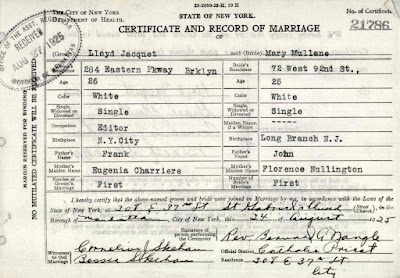 22-2650-25-H, 10 H
THE CITY OF NEW YORK
DEPARTMENT OF HEALTH.
STATE OF NEW YORK.
No. of Certificate
CERTIFICATE AND RECORD OF MARRIAGE
21786
OF
OFFICE OF THE ASST. REGISTRAR
RECEIVED
AUG 27 1925
MARGIN RESERVED FOR BINDING
NO MUTILATED CERTIFICATE WILL BE RECEIVED
(Groom) Lloyd Jacquet and (Bride) Mary Mullene
284 Eastern Pkway Brklyn Bride's Residence 72 West 92nd St.,
Age 26 Age 25
Color White Color White
Single, Widowed or Divorced Single Single, Widowed or Divorced Single
Occupation Editor Maiden Name, if a Widow -----
Birthplace N.Y.City Birthplace Long Branch N.J.
Father's Name Frank Father's Name John
Mother's Maiden Name Eugenia Charriere Mother's Maiden Name Florence Nullington
Number of Groom's Marriage First Number of Bride's Marriage First
I hereby certify that the above-named groom and bride were joined in Marriage by me, in accordance with the Laws of the
State of New York, at 308 E 37th St (Street), (Church), in the Borough
of Manhattan, City of New York, this 24 of August 1925
Signature of person performing the Ceremony Rev.
Witnesses to the Marriage Cornelius J Skehan Official Station Catholic Priest
Bessie Skehan Residence 308 E 37th St
City